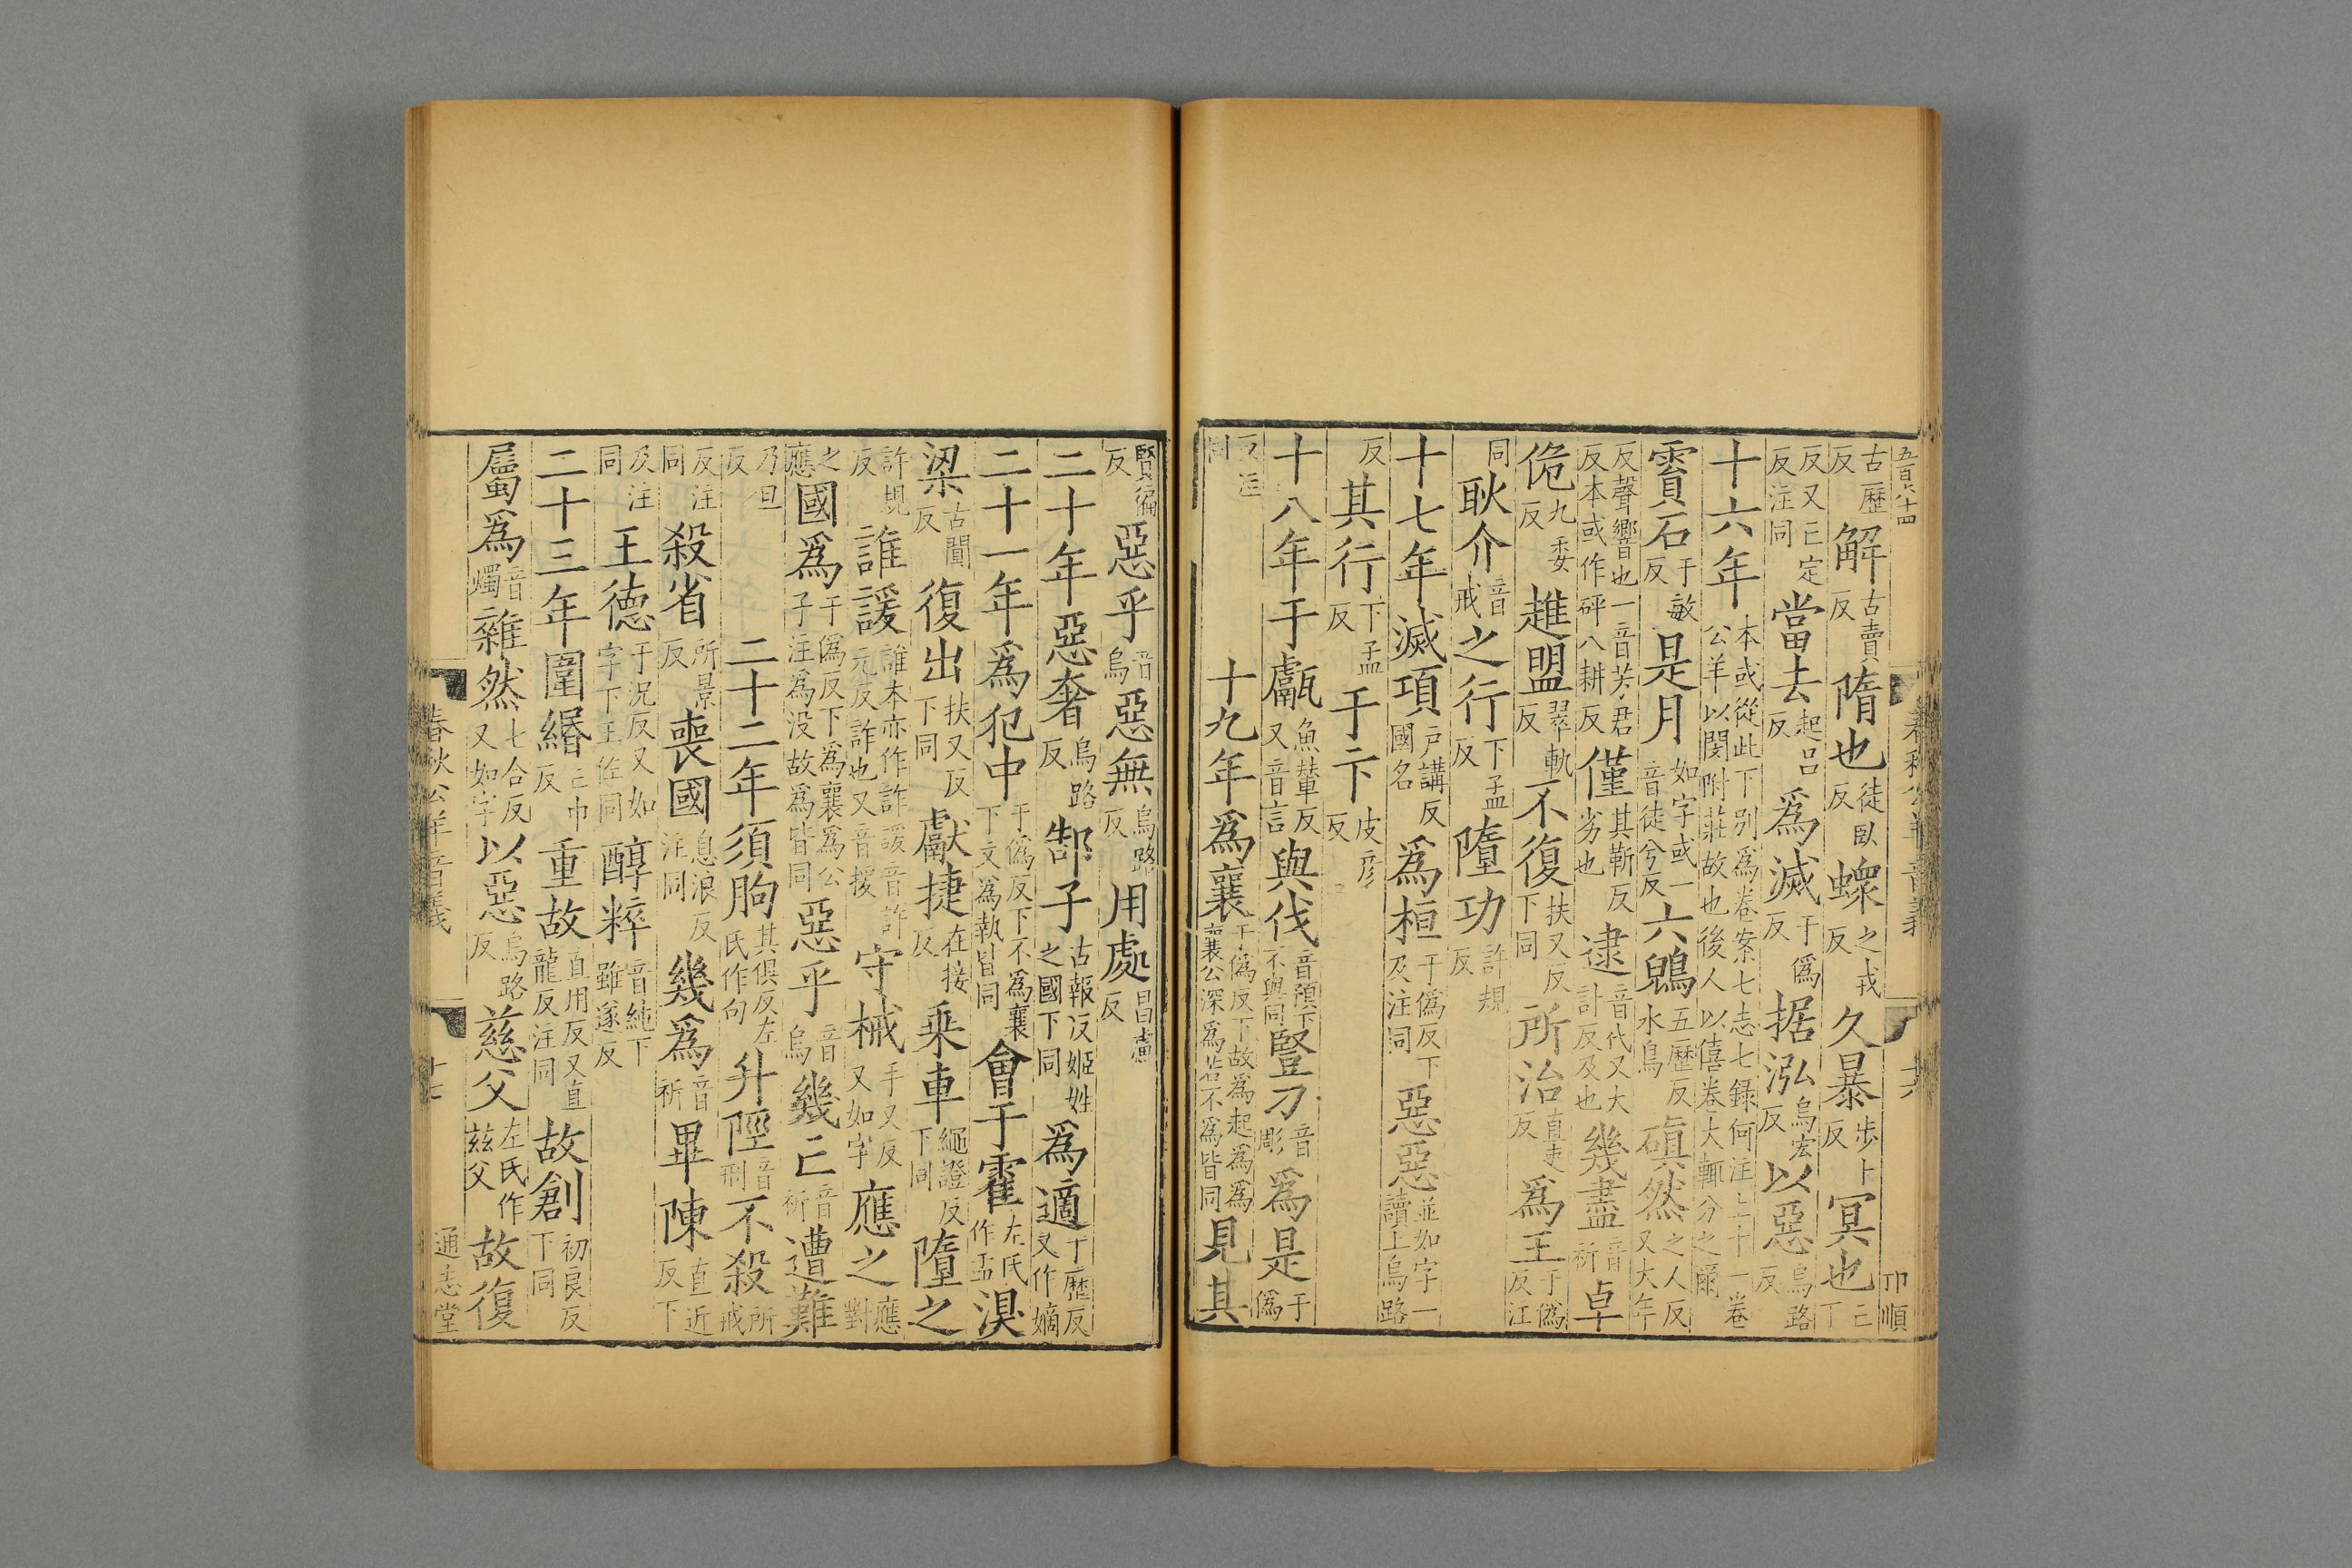 五百六十四 春秋公羊音義 十六 卭順
古歷反解古賣反隋也徒臥反蠑之戎反久暴步卜反冥也亡丁
反又亡定反注同當去起呂反為滅于偽反据泓烏宏反以惡烏路反
十六年本或從此下別為卷案七志七錄何注止十一卷公羊以閔附莊故也後人以僖卷大輒分之爾
霣石于敏反是月如字或一音徒兮反六鶂五歷反水鳥磌然之人反又大年
反聲響也一音芳君反本或作砰八耕反僅其靳反劣也逮音代又大計反及也幾盡音祈卓
佹九委反趡盟翠軌反不復扶又反下同所治直吏反為王于偽反江
同耿介音戒之行下孟反隋功許規反
十七年滅項戶講反國名為桓于偽反下及注同惡惡並如字一讀上烏路
反其行下孟反于卞皮彥反
十八年于甗魚輦反又音言與伐音預下不與同豎刁音彫為是于偽
反注同十九年為襄于偽反下故為起為為襄公深為若不為皆同見其
賢徧反惡乎音烏惡無烏路反用處昌慮反
二十年惡奢烏路反郜子古報反姬姓之國下同為適丁歷反又作嫡
二十一年為犯中于偽反下不為襄下文為執皆同會于霍左氏作盂湨
梁古闃反復出扶又反下同獻捷在接反乘車繩證反下同隋之
許規反誰諼誰本亦作詐諼音許元反詐也又音援守械手又反又如字應之應對
之應國為于偽反下為襄為公子注為没故為皆同惡乎音烏幾亡音祈遭難
乃旦反二十二年須朐其俱反左氏作句升陘音刑不殺所戒
反注同殺省所景反喪國息浪反注同幾為音祈畢陳直近反下
及注同王德于況反又如字下王佐同醇粹音純下雖遂反
二十三年圍緡亡巾反重故直用反又直龍反注同故創初良反下同
屬為音燭雜然七合反又如字以惡烏路反慈父左氏作茲父故復
春秋公羊音義 十七 通志堂